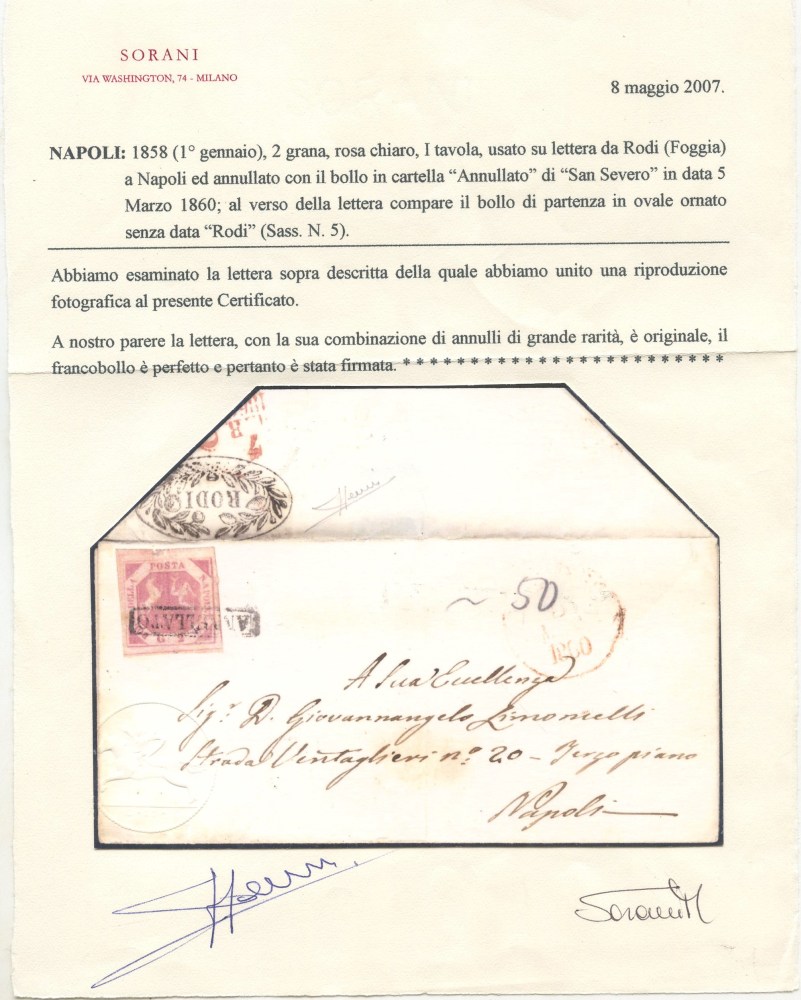 SORANI
VIA WASHINGTON, 74 - MILANO
8 maggio 2007.
NAPOLI: 1858 (1° gennaio), 2 grana, rosa chiaro, I tavola, usato su lettera da Rodi (Foggia)
a Napoli ed annullato con il bollo in cartella “Annullato” di “San Severo” in data 5
Marzo 1860; al verso della lettera compare il bollo di partenza in ovale ornato
senza data “Rodi” (Sass. N. 5).
Abbiamo esaminato la lettera sopra descritta della quale abbiamo unito una riproduzione
fotografica al presente Certificato.
A nostro parere la lettera, con la sua combinazione di annulli di grande rarità, è originale, il
francobollo è perfetto e pertanto è stata firmata. * * * * * * * * * * * * * * * * * * * * * * * *
RODI
POSTA
ANNULLATO
~ 50
1860
A Sua Eccellenza
Sig.r D. Giovannangelo Limoncelli
Strada Ventaglieri n.o 20 - Terzo piano
Napoli
SoraniM